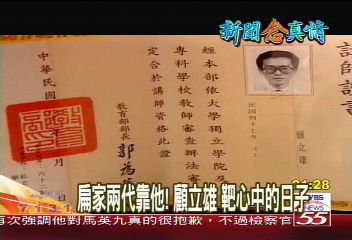 新聞念真情
顧立雄
經本部依大學獨立學院及
專科學校教師審查辦法審
定合於講師資格此證
教育部部長 郭為藩
中華民國
扁家兩代靠他! 顧立雄 靶心中的日子
4:28
NEWS
55
再次強調他對馬英九真的很抱歉，不過檢察官